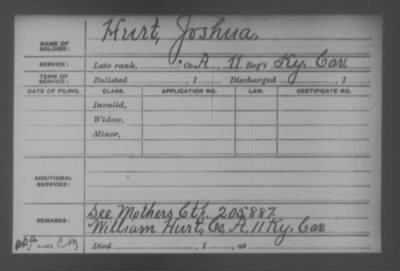 Hurt, Joshua.
NAME OF SOLDIER:
SERVICE: Late rank, Co. A, 11 Reg't Ky. Cav.
TERM OF SERVICE: Enlisted , 1 Discharged , 1
DATE OF FILING. CLASS. APPLICATION NO. LAW. CERTIFICATE NO.
Invalid,
Widow,
Minor,
ADDITIONAL SERVICES:
See Mothers Ctf. 205887.
REMARKS: William Hurt, Co. A. 11 Ky. Cav
Died , 1 , at